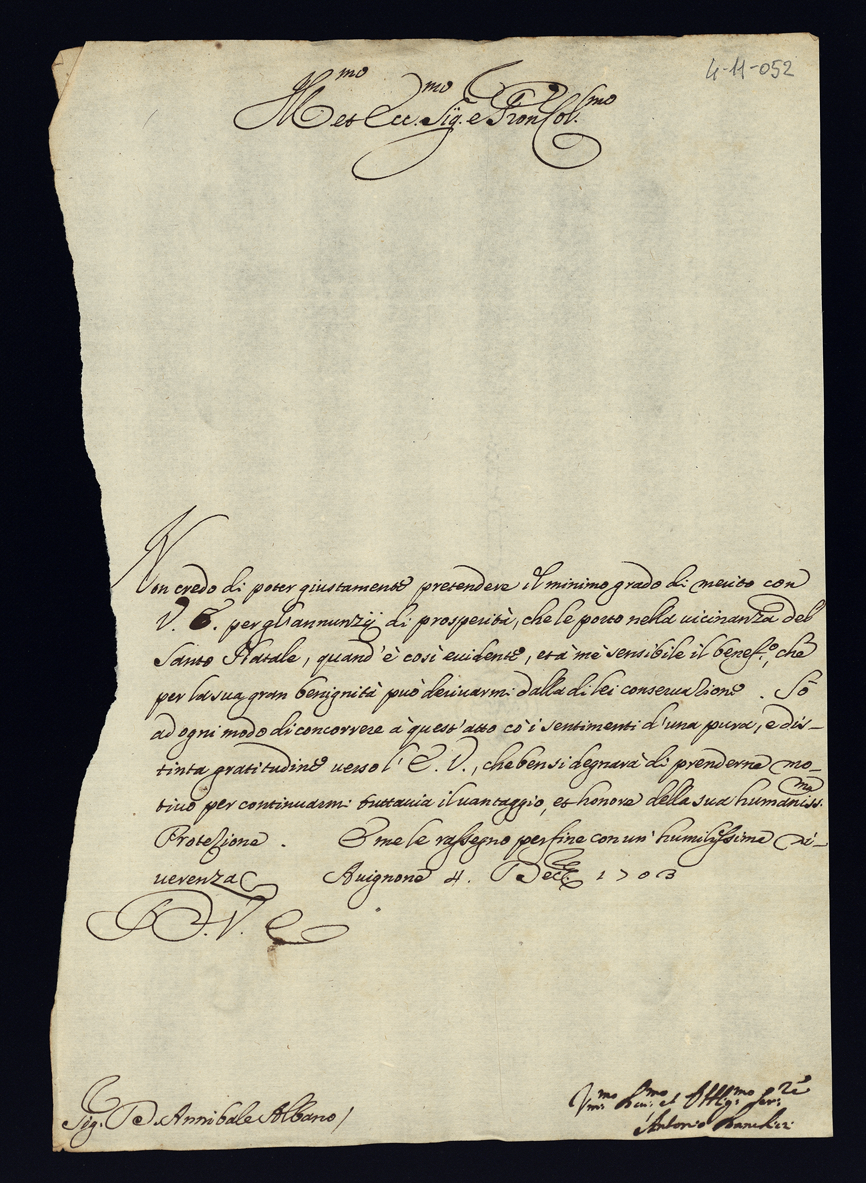 4-11-052
Ill.mo et Ecc.mo Sig. e Pron Col.mo
Non credo di poter giustamente pretendere il minimo grado di merito con
V. E. per gl'annunzij di prosperità, che le porto nella vicinanza del
Santo Natale, quand'è così evidente, et à mè sensibile il benef.o, che
per la sua gran benignità può derivarmi dalla di lei conservazione. Sò
ad ogni modo di concorrere à quest'atto cò i sentimenti d'una pura, e dis-
tinta gratitudine verso l'E. V., che ben si degnarà di prenderne mo-
tivo per continuarmi tuttavia il vantaggio, et honore della sua humaniss.ma
Protezione. E me le rassegno per fine con un' humilissima ri-
verenza Avignone 4. Dec.e 1703
D. V. E.
Sig. D. Annibale Albano /
et Obblig.mo Ser.re
Antonio Banchieri